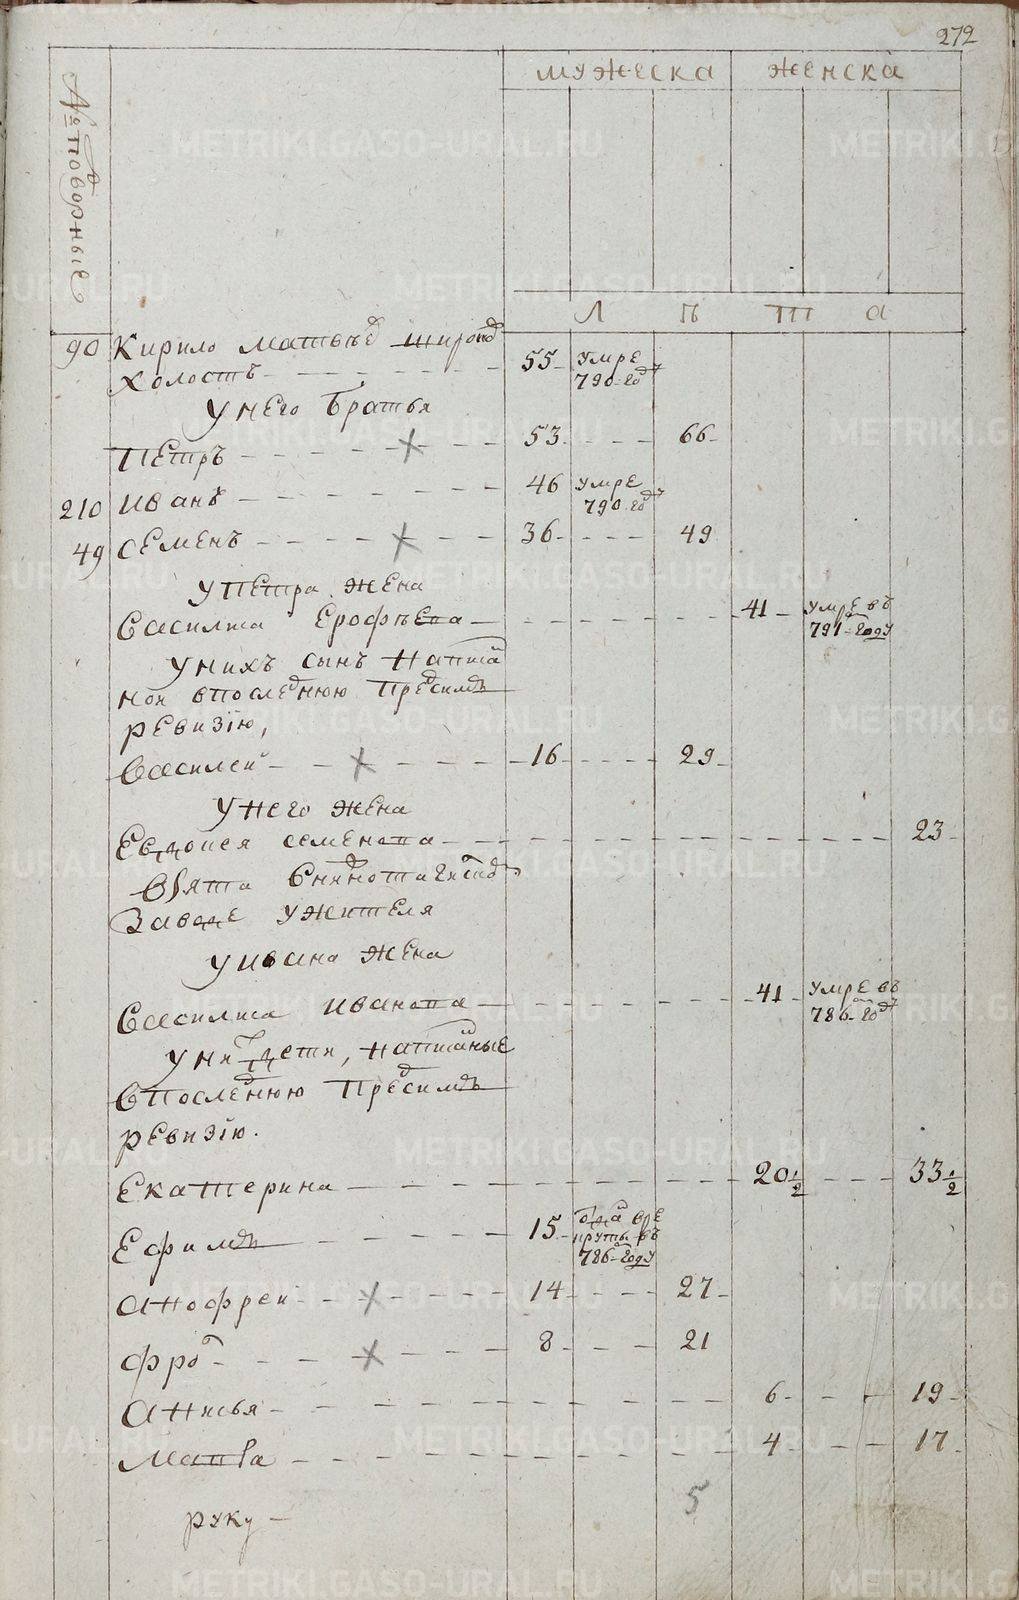 272
№ подворные
мужеска женска
л ѣ т а
90 Кирило Матвѣевъ
холостъ 55 умре 790 году
у него братья
Петръ 53 66
210 Иванъ 46 умре 790 году
49 Семенъ 36 49
у Петра жена
Василиса Ерофѣева 41 умре въ 791 году
у нихъ сынъ написа
ной впоследнюю предсимъ
ревизïю,
Василей 16 29
у него жена
Евдокея Семенова 23
взята
заводе ужителя
у Ивана жена
Василиса Иванова 41 умре въ 786 году
у них дети, написаные
впоследнюю предсимъ
ревизïю.
Екатерина 20 1/2 33 1/2
Ефимъ 15 отданъ в рекруты въ 786 году
Анофреи 14 27
Фрол 8 21
Анисья 6 19
4 17
руку
5
METRIKI.GASO-URAL.RU